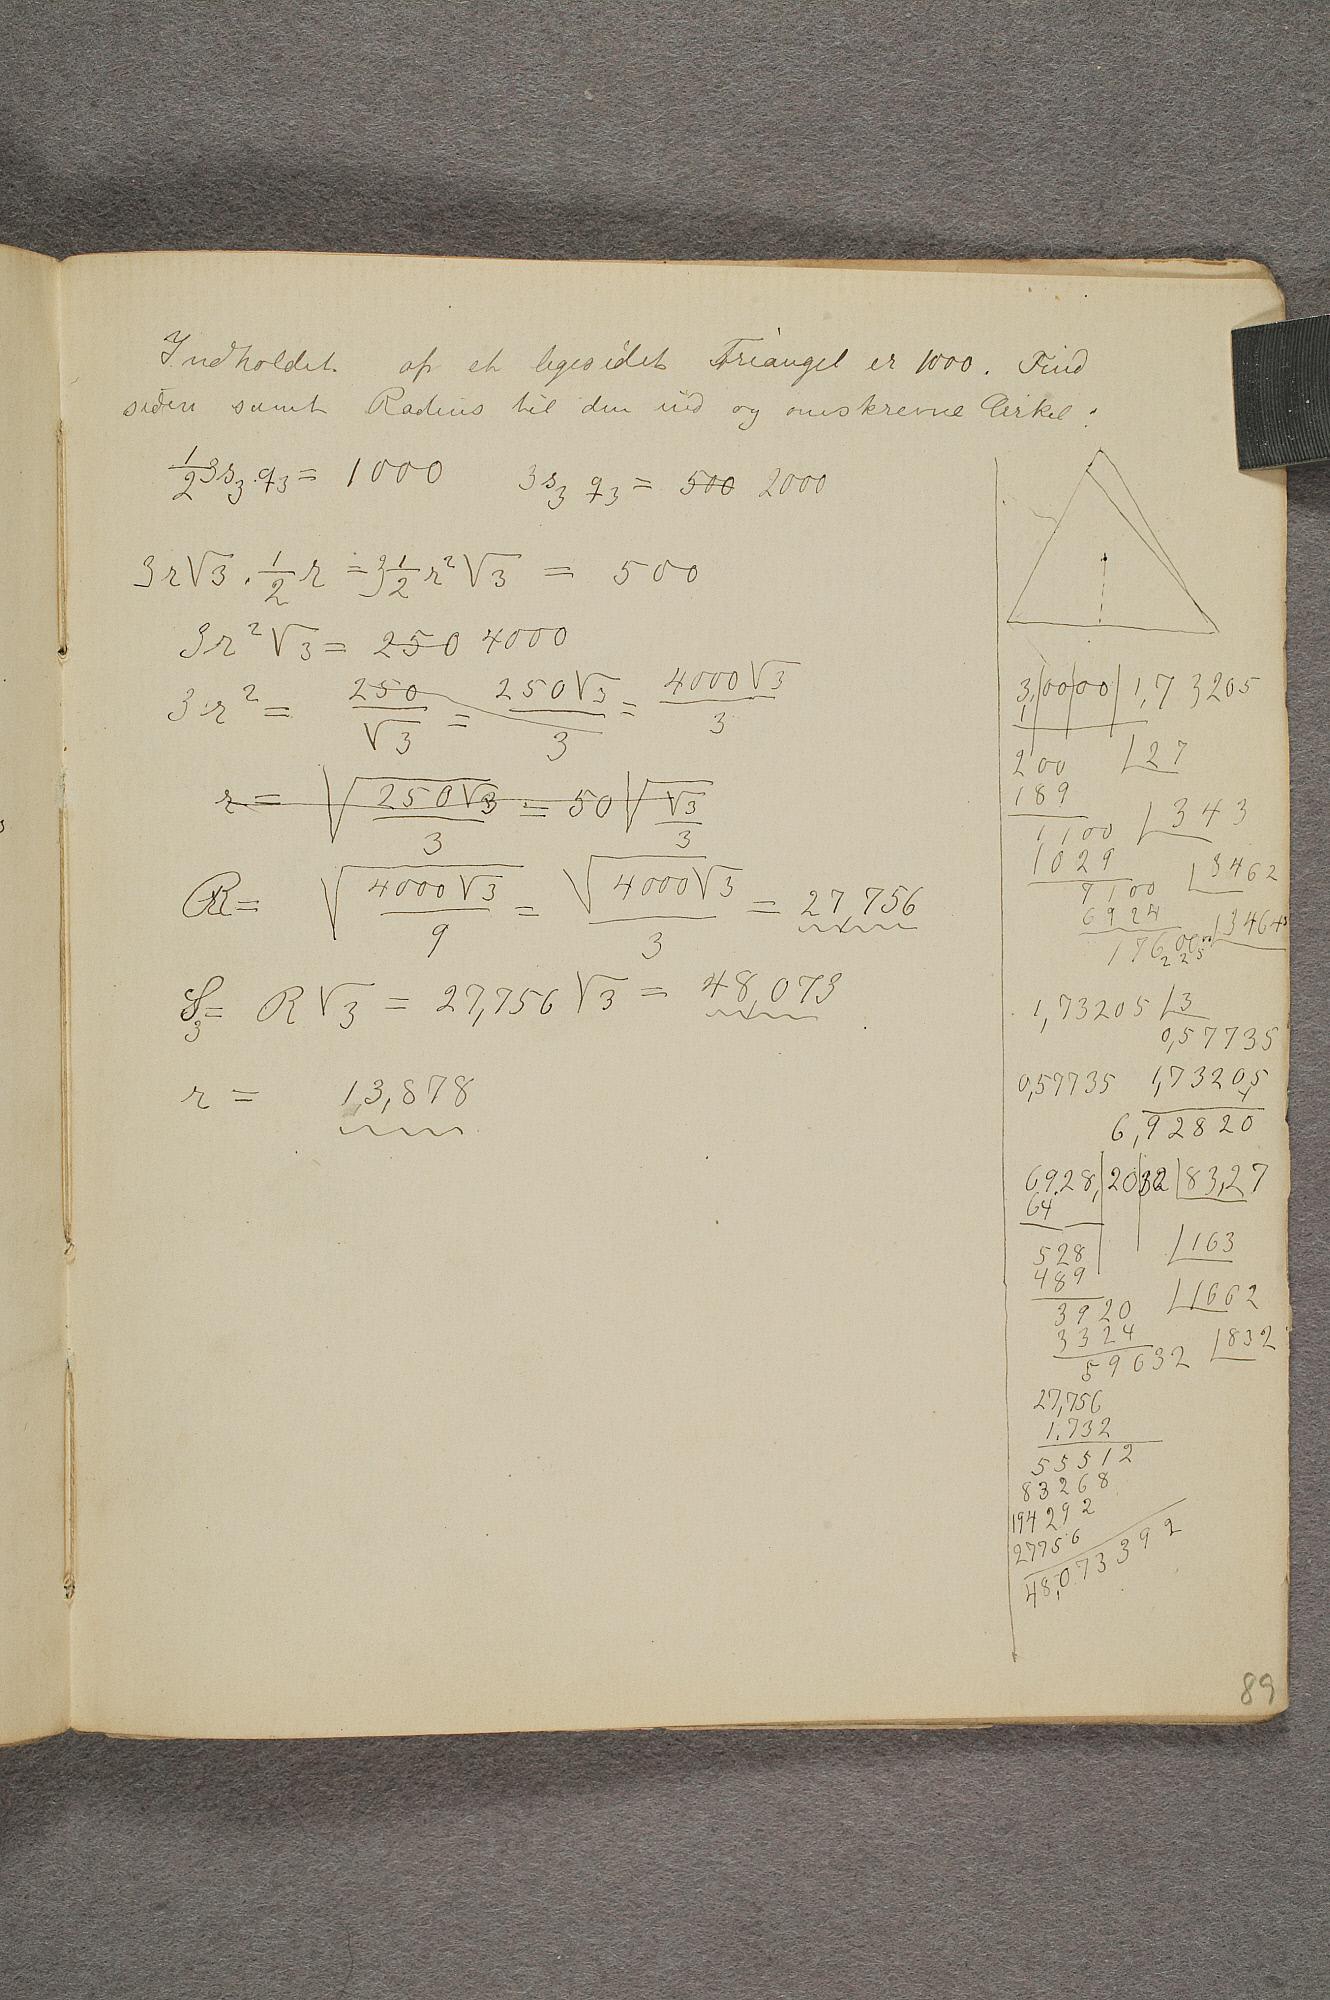 Indholdet af et ligesidet Triangel er 1000. Find
siden samt Radius til den ind og omskrevne Cirkel.
½3s₃·q₃= 1000 3s₃ q₃ = 500 2000
3r√3 · ½r = 3½r²√3 = 500
3r²√3 = 250 4000
3r² = 250/√3 = 250√3/3 = 4000√3/3
r = √(250√3/3) = 50√(√3/3)
R = √(4000√3/9) = √(4000√3)/3 = 27,756
S₃ = R√3 = 27,756√3 = 48,073
r = 13,878
3,|00|00| 1,73205
1
200 27
189
1100 343
1029
7100 3462
6924
17600 3464
1,73205 3
0,57735
0,57735 1,73205
4
6,92820
6928,|20|32 83,27
64
528 163
489
3920 1662
3324
59632 832
27,756
1.732
55512
83268
194292
27756
48,073392
89